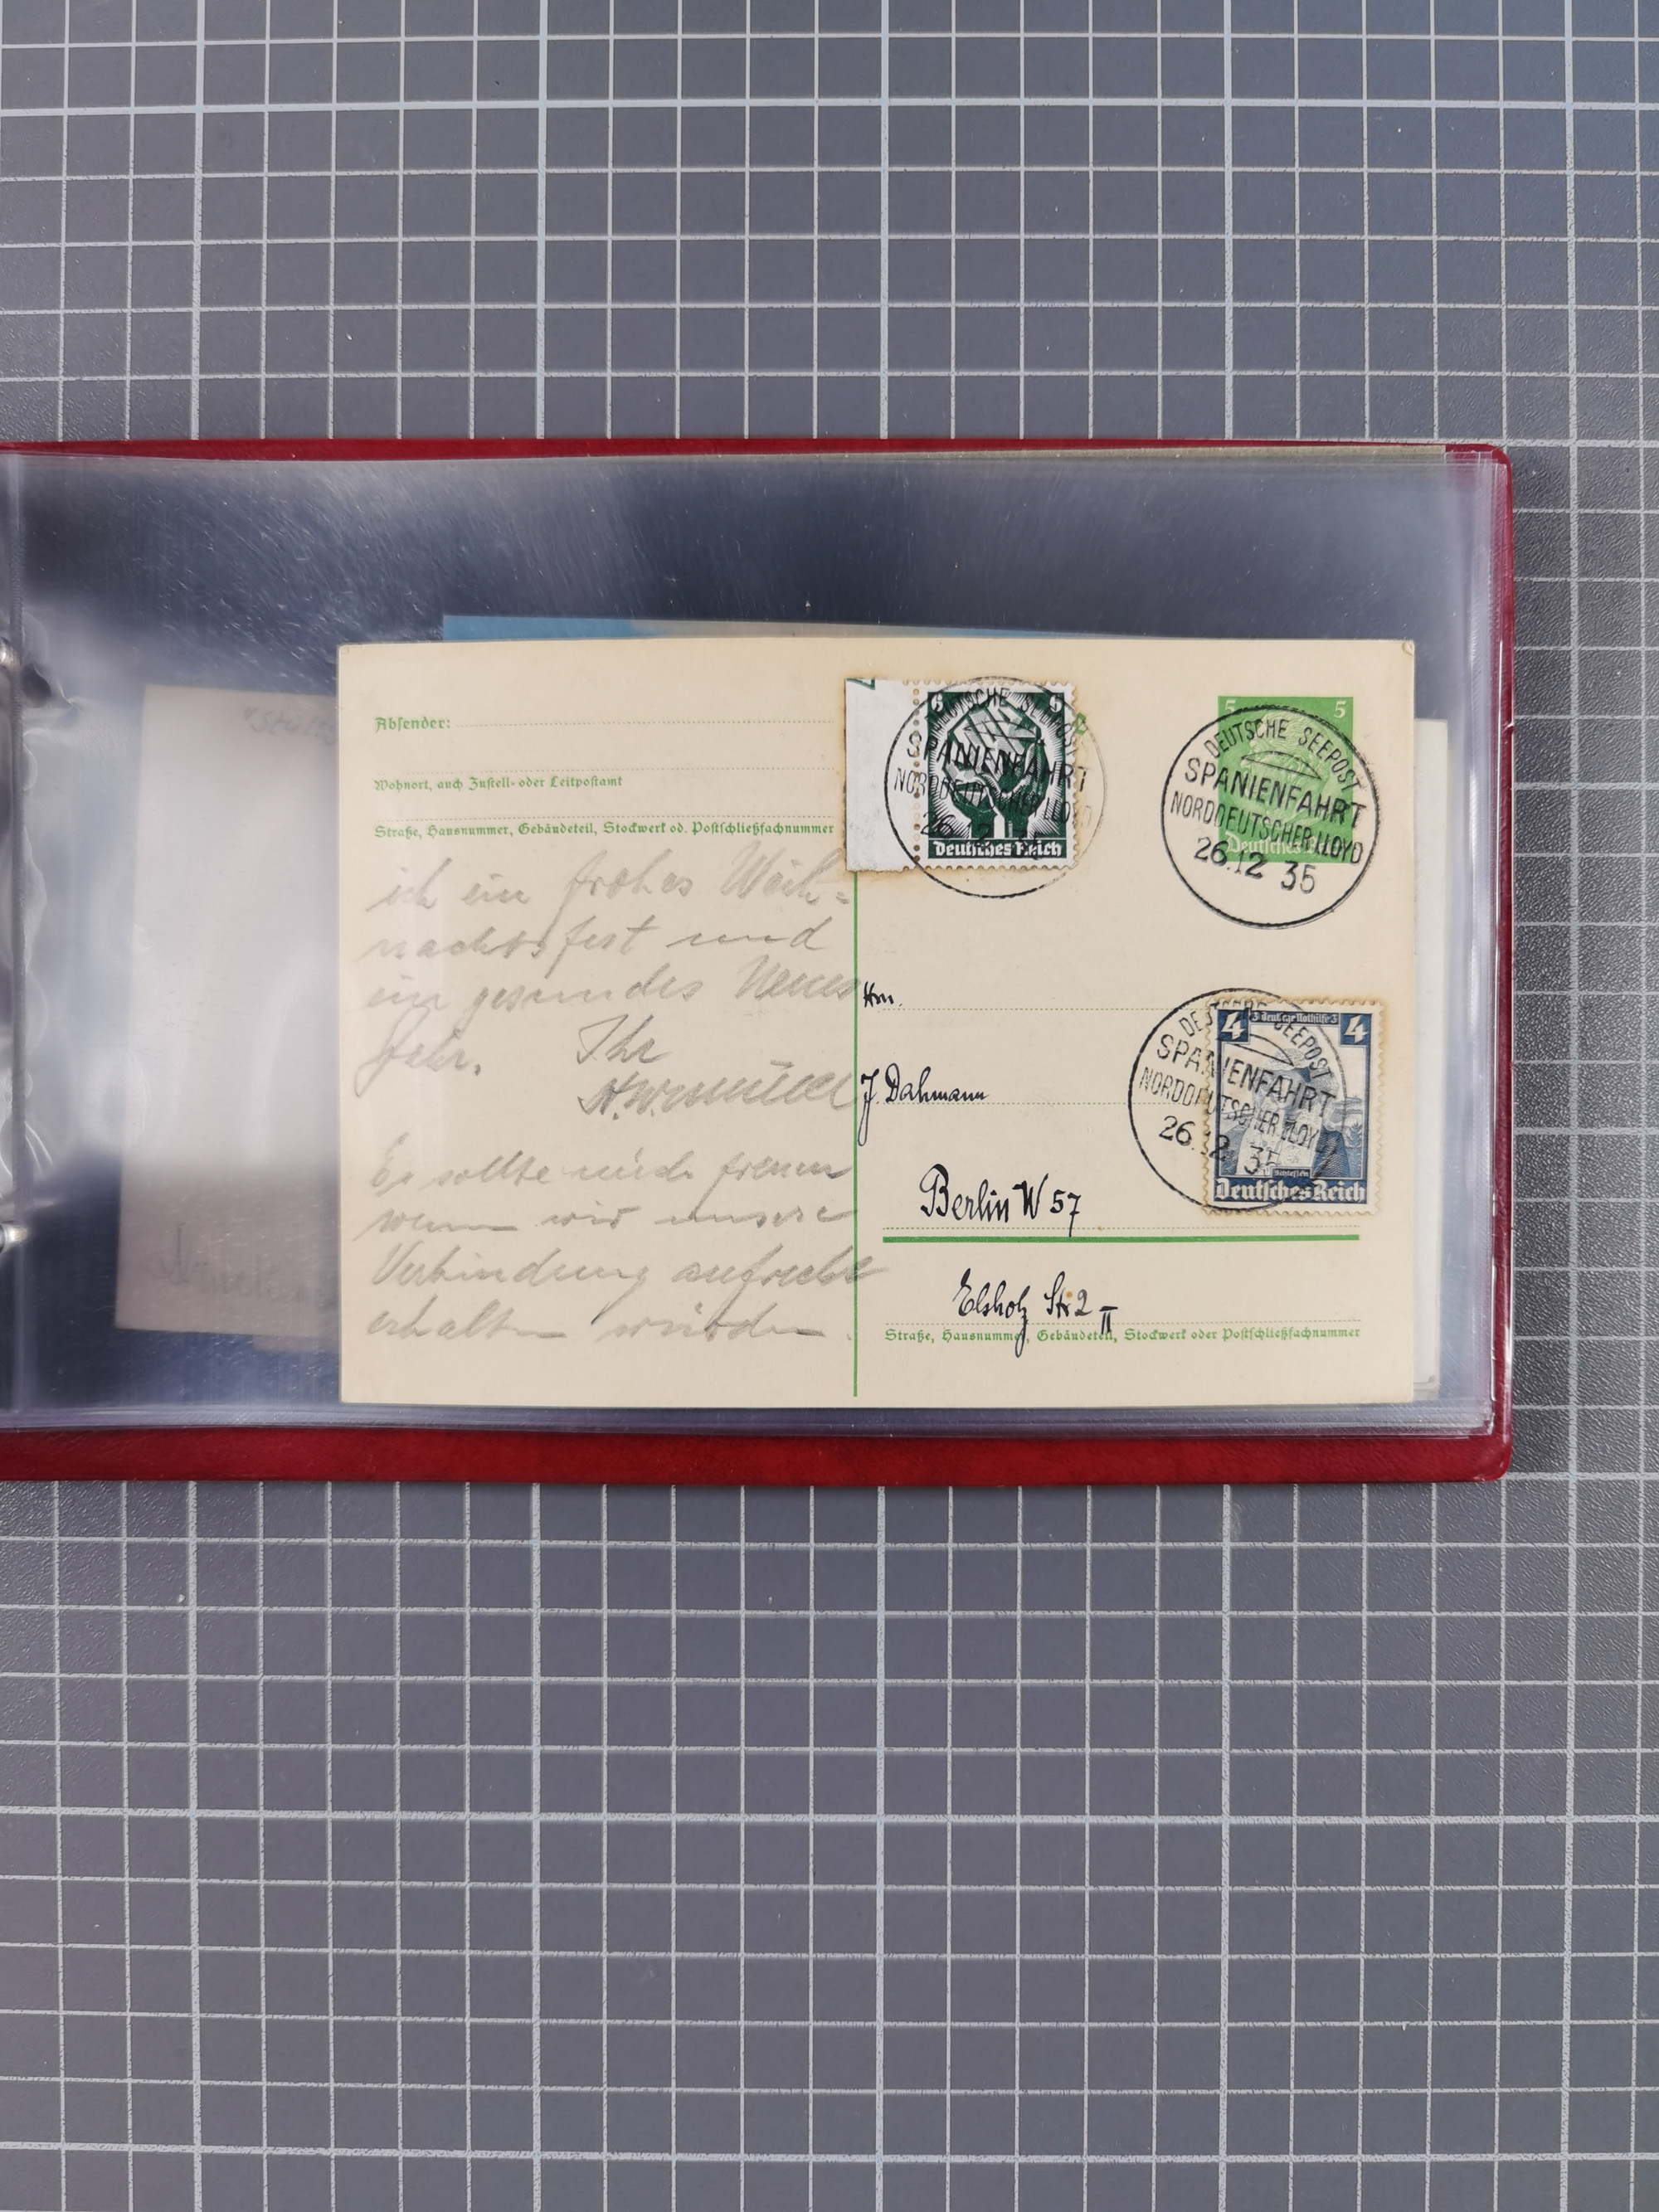 Absender:
Wohnort, auch Zustell- oder Leitpostamt
Straße, Hausnummer, Gebäudeteil, Stockwerk od. Postschließfachnummer
ich ein frohes Weih-
nachtsfest und
ein gesundes Neues
Jahr. Ihr
Es sollte mich freuen
wenn wir unsere
Verbindung aufrecht
erhalten würden.
5 5
DEUTSCHE SEEPOST
SPANIENFAHRT
NORDDEUTSCHER LLOYD
26.12
Deutsches Reich
5 5
DEUTSCHE SEEPOST
SPANIENFAHRT
NORDDEUTSCHER LLOYD
26.12 35
Deutsches
Hrn.
J. Dahmann
Berlin W 57
Elsholz Str 2 II
Straße, Hausnummer, Gebäudeteil, Stockwerk oder Postschließfachnummer
4 3 Deutsche Nothilfe 3 4
DEUTSCHE SEEPOST
SPANIENFAHRT
NORDDEUTSCHER LLOYD
26.12 35
Schlesien
Deutsches Reich